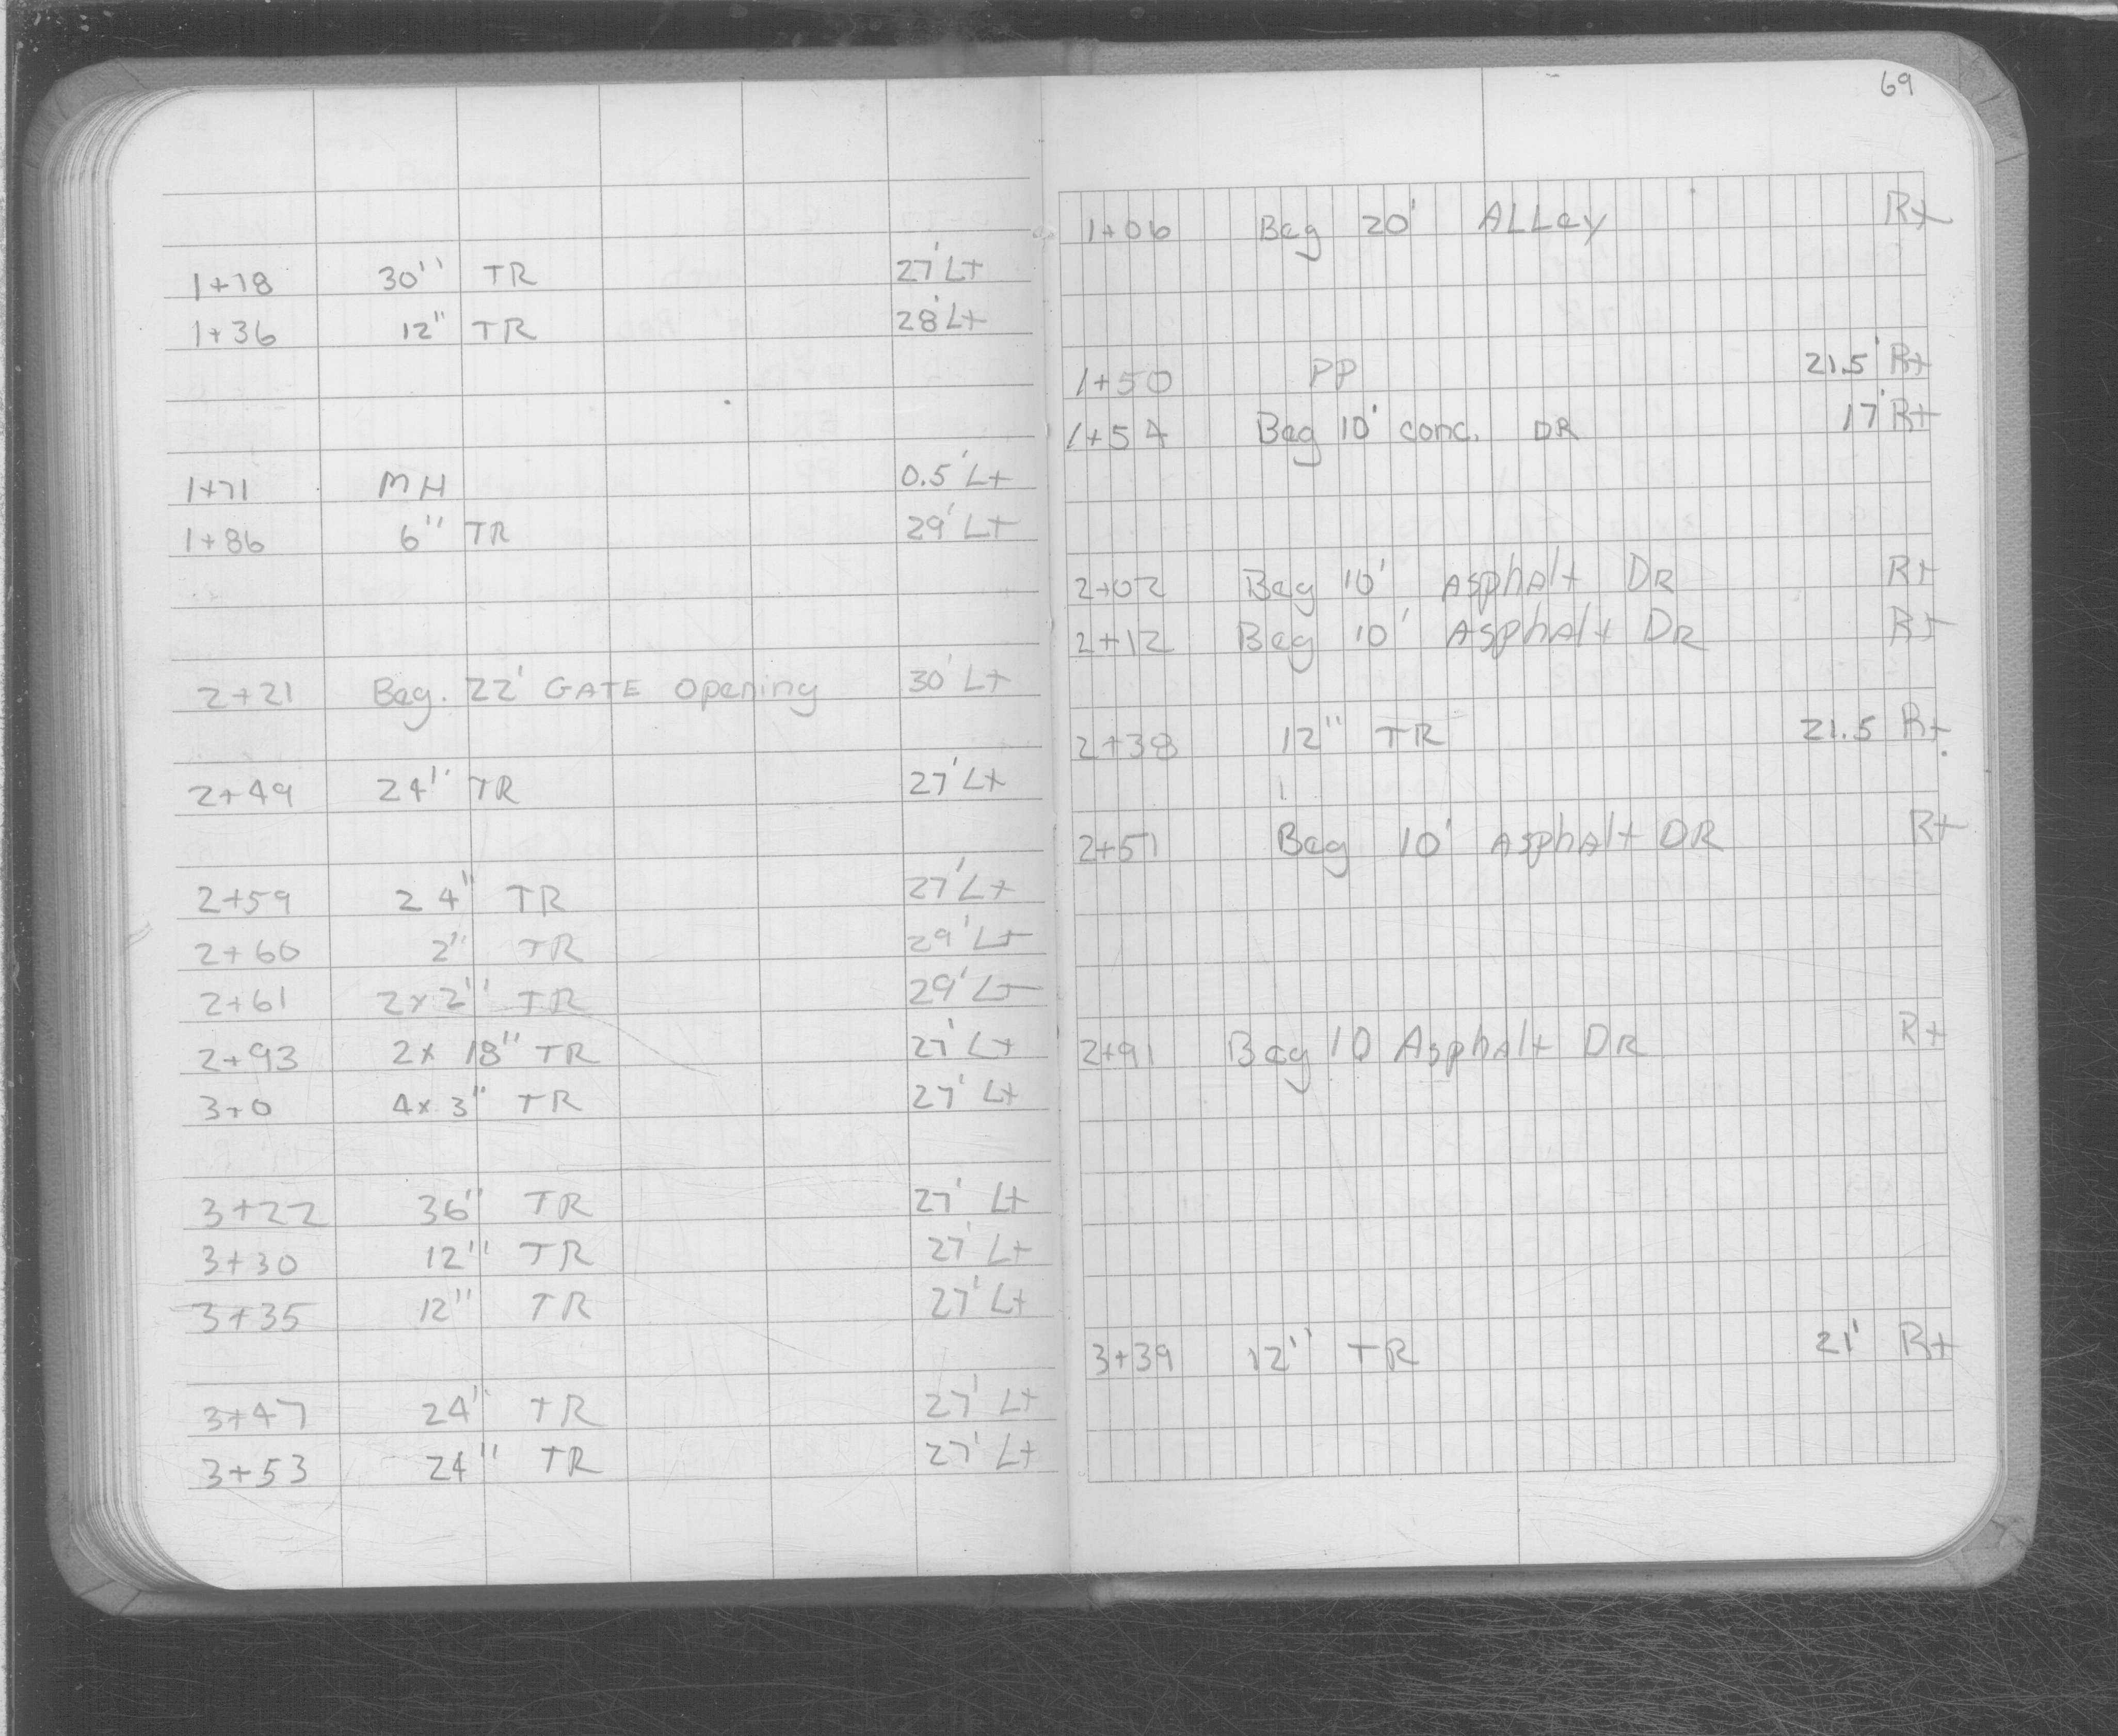 1+18 30" TR 27' Lt
1+36 12" TR 28' Lt
1+71 MH 0.5' Lt
1+86 6" TR 29' Lt
2+21 Beg. 22' GATE Opening 30' Lt
2+49 24" TR 27' Lt
2+59 24" TR 27' Lt
2+60 2" TR 29' Lt
2+61 2x2" TR 29' Lt
2+93 2x 18" TR 27' Lt
3+0 4x 3" TR 27' Lt
3+22 36" TR 27' Lt
3+30 12" TR 27' Lt
3+35 12" TR 27' Lt
3+47 24" TR 27' Lt
3+53 24" TR 27' Lt
69
1+06 Beg 20' ALLey Rt
1+50 PP 21.5' Rt
1+54 Beg 10' conc. DR 17' Rt
2+02 Beg 10' Asphalt DR Rt
2+12 Beg 10' Asphalt DR Rt
2+38 12" TR 21.5 Rt
2+51 Beg 10' Asphalt DR Rt
2+91 Beg 10 Asphalt DR Rt
3+39 12" TR 21' Rt